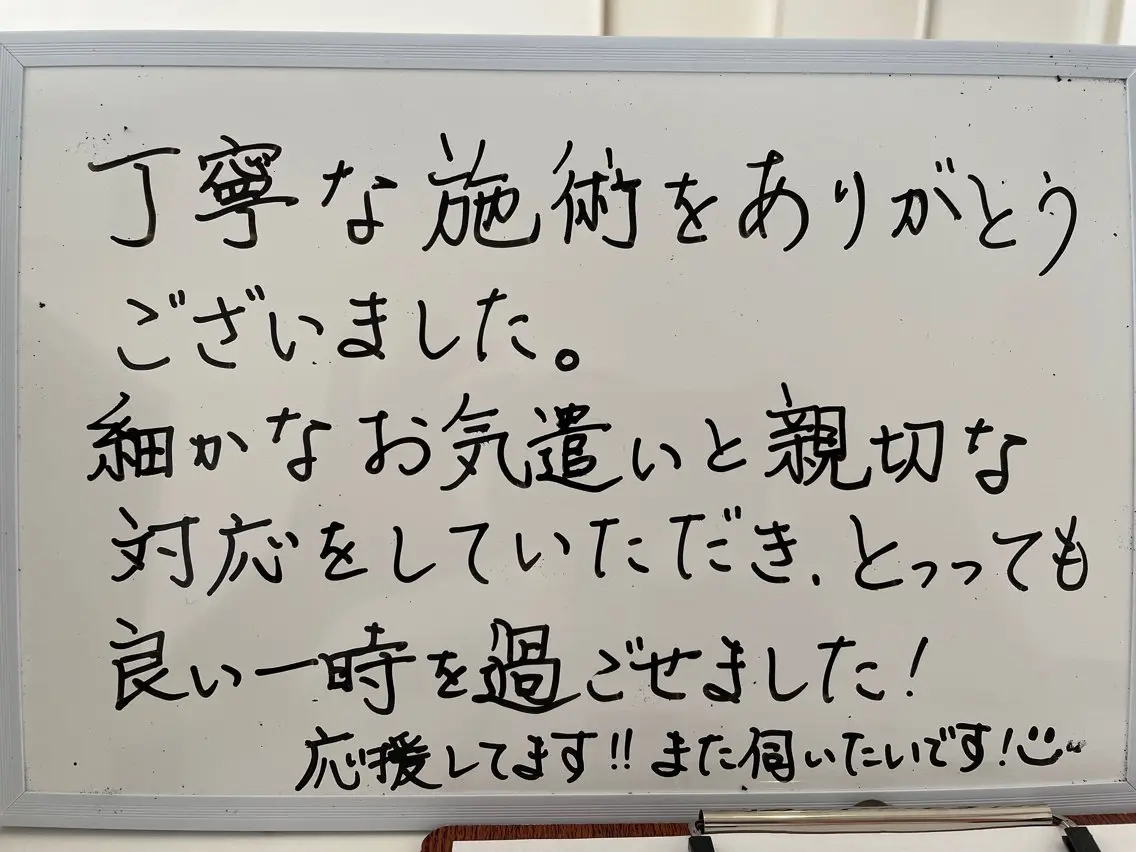 丁寧な施術をありがとう
ございました。
細かなお気遣いと親切な
対応をしていただき、とっっても
良い一時を過ごせました！
応援してます!! また伺いたいです！